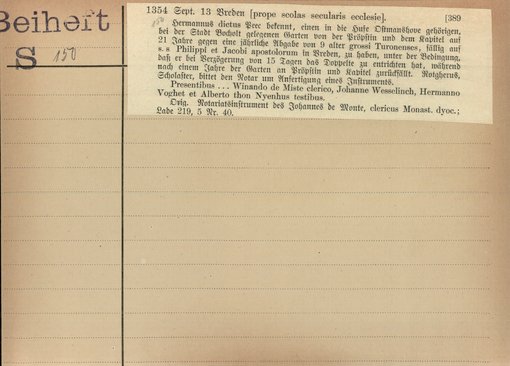 Beiheft
S 150
1354 Sept. 13 Vreden [prope scolas secularis ecclesie]. [389
Hermannus dictus Peec bekennt, einen in die Hufe Ostmanshove gehörigen,
bei der Stadt Bocholt gelegenen Garten von der Pröpstin und dem Kapitel auf
21 Jahre gegen eine jährliche Abgabe von 9 alter grossi Turonenses, fällig auf
s. s Philippi et Jacobi apostolorum in Vreden, zu haben, unter der Bedingung,
daß er bei Verzögerung von 15 Tagen das Doppelte zu entrichten hat, während
nach einem Jahre der Garten an Pröpstin und Kapitel zurückfällt. Rotgherus,
Scholaster, bittet den Notar um Anfertigung eines Instruments.
Presentibus ... Winando de Miste clerico, Johanne Wesselinch, Hermanno
Voghet et Alberto thon Nyenhus testibus.
Orig. Notariatsinstrument des Johannes de Monte, clericus Monast. dyoc.;
Lade 219, 5 Nr. 40.